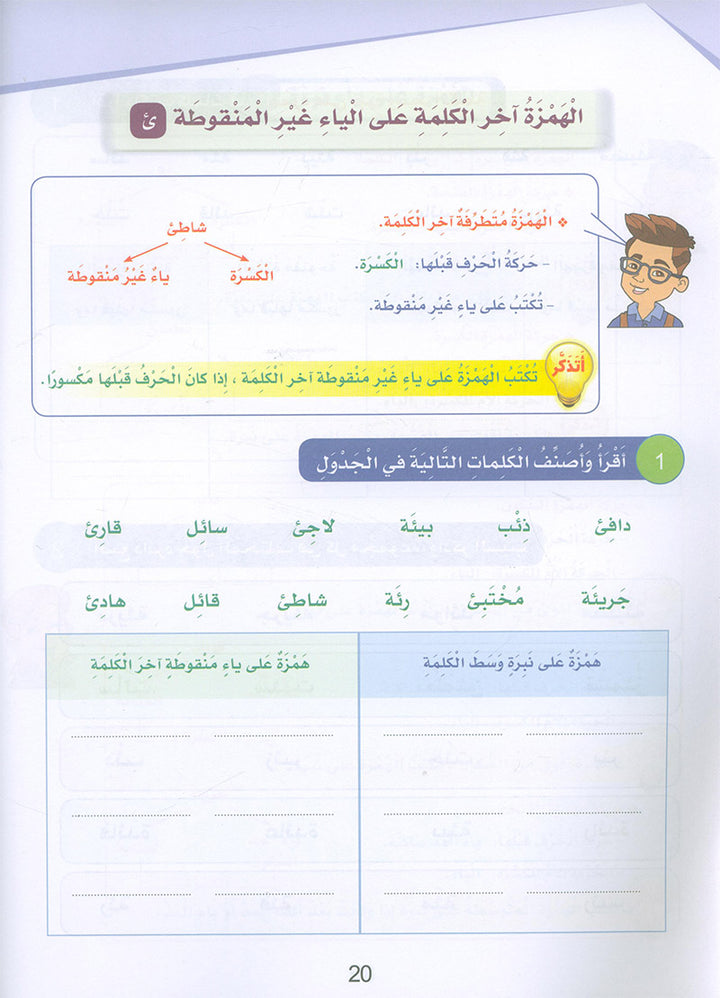 الْهَمْزَةُ آخِر الْكَلِمَةِ عَلى الْياءِ غَيْرِ الْمَنْقوطَة ئ
❖ الْهَمْزَةُ مُتَطَرِّفَةٌ آخِر الْكَلِمَة.
– حَرَكَةُ الْحَرْفِ قَبْلَها: الْكَسْرَة.
– تُكْتَبُ عَلى ياءٍ غَيْرِ مَنْقوطَة.
شاطِئ
الْكَسْرَة
ياءٌ غَيْرُ مَنْقوطَة
أَتَذَكَّر
تُكْتَبُ الْهَمْزَةُ عَلى ياءٍ غَيْرِ مَنْقوطَة آخِرَ الْكَلِمَة ، إِذا كانَ الْحَرْفُ قَبْلَها مَكْسورًا.
1 أَقْرَأُ وَأُصَنِّفُ الْكَلِماتِ التَّالِيَةَ في الْجَدْوَلِ
دافِئ ذِئْب بيئَة لاجِئ سائِل قارِئ
جَريئَة مُخْتَبِئ رِئَة شاطِئ قائِل هادئ
هَمْزَةٌ عَلى نَبِرَةٍ وَسَطَ الْكَلِمَةِ
هَمْزَةٌ عَلى ياءٍ مَنْقوطَةٍ آخِرَ الْكَلِمَةِ
20